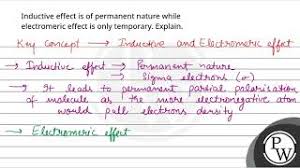 Inductive effect is of permanent nature while
electromeric effect is only temporary. Explain.
Key Concept → Inductive and Electromeric effect
→ Inductive effect → Permanent nature
→ Sigma electrons (σ)
→ It leads to permanent partial polarisation
of molecule as the more electronegative atom
would pull electrons density
→ Electromeric effect
P
W